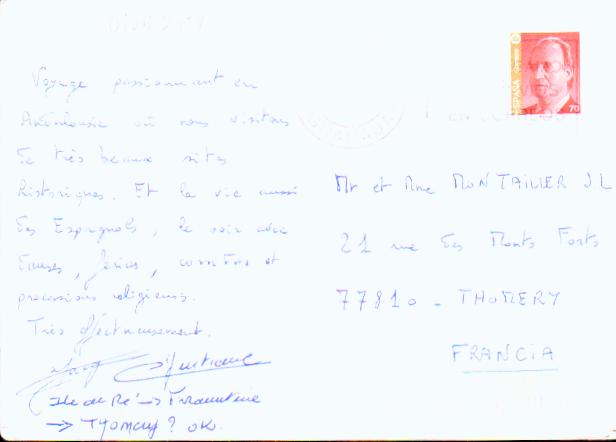 Voyage passionnant en
Andalousie où nous visitons
de très beaux sites
historiques. Et la vie aussi
des Espagnols, le soir avec
danses, ferias, corridas et
processions religieuses.
Très affectueusement.
Ile de Ré
→ Thomery ? OK.
ESPAÑA
70
Mr et Mme MONTAILLER J L
21 rue des Monts Forts
77810 - THOMERY
FRANCIA